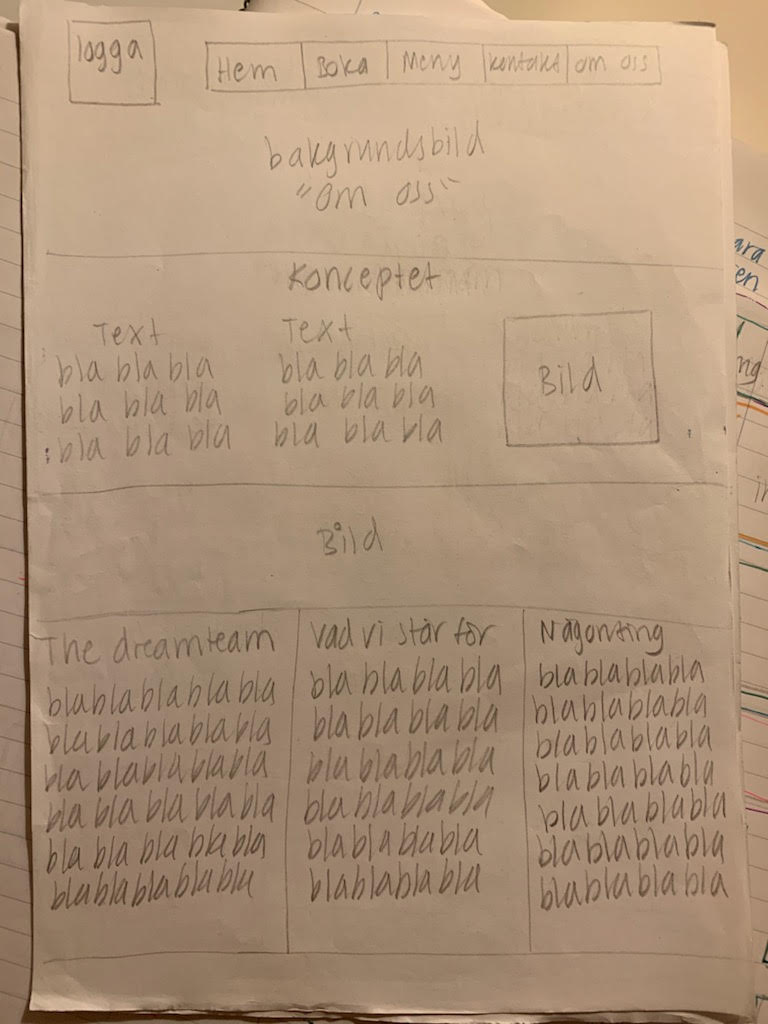 logga
Hem Boka Meny kontakt om oss
bakgrundsbild
"om oss"
Konceptet
Text Text
bla bla bla bla bla bla
bla bla bla bla bla bla
bla bla bla bla bla bla
Bild
Bild
The dreamteam
blablablablabla
blablablablabla
bla blablablabla
bla bla bla bla bla
bla bla bla bla bla
blablablablabla
Vad vi står för
bla bla bla bla
bla bla bla bla
bla blablabla
bla blablabla
blablablabla
blablablabla
Någonting
blablablabla
blablablabla
blablablabla
blablablabla
bla blablabla
blablablabla
blablablabla
ara
en
ng